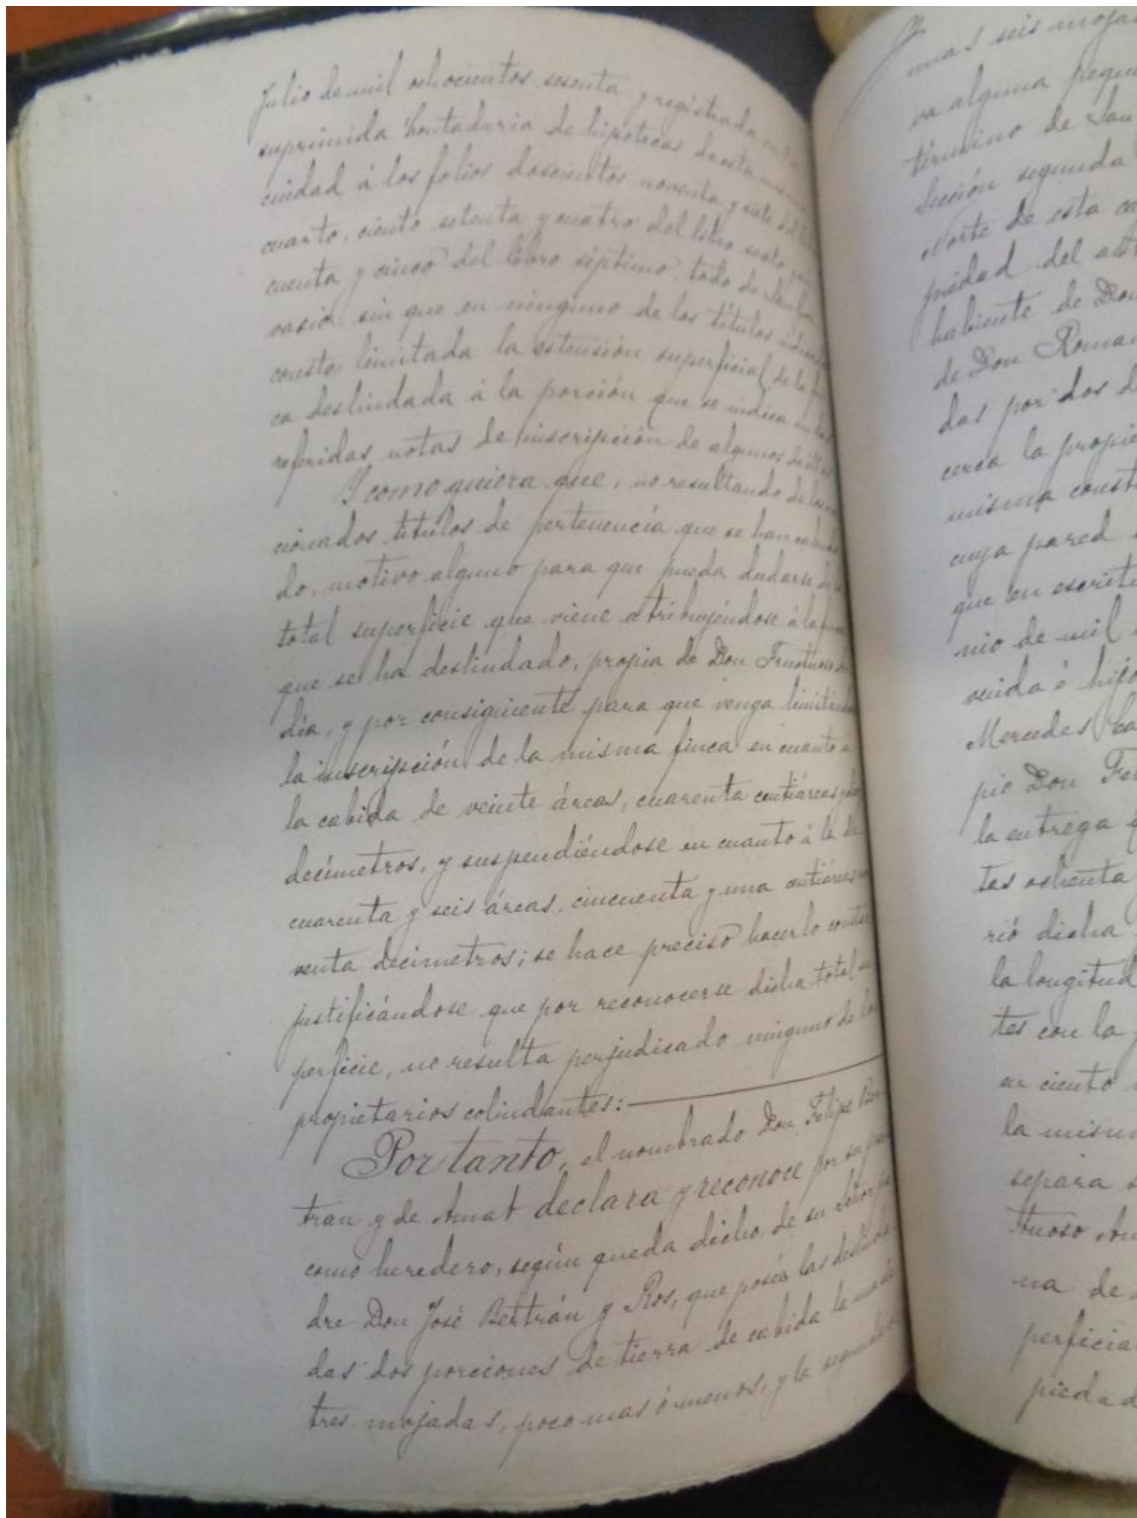 Julio de mil ochocientos sesenta y registrada en la
suprimida Contaduria de hipotecas de esta misma
ciudad á los folios doscientos noventa y siete del
cuarto, ciento setenta y cuatro del libro sexto
cuenta y cinco del libro séptimo, todo de San
vasio, sin que en ninguno de los títulos
conste limitada la estensión superficial de la fin
ca deslindada á la porción que se indica en las
referidas notas de inscripción de algunos de ellos
Y como quiera que, no resultando de los
cionados títulos de pertenencia que se han
do, motivo alguno para que pueda dudarse de la
total superficie que viene atribuyéndose á la finca
que se ha deslindado, propia de Don Fructuoso
dia, y por consiguiente para que venga
la inscripción de la misma finca en cuanto a
la cabida de veinte áreas, cuarenta centiáreas
decímetros, y suspendiéndose en cuanto á la de
cuarenta y seis áreas, cincuenta y una centiáreas
venta decimetros; se hace preciso hacerlo
justificándose que por reconocerse dicha total su
perficie, no resulta perjudicado ninguno de los
propietarios colindantes:
Por tanto, el nombrado Don Felipe Ber
tran y de Amat declara y reconoce por su
como heredero, según queda dicho, de su Señor pa
dre Don José Bertrán y Ros, que poseía las deslinda
das dos porciones de tierra de cabida la una de
tres mojadas, poco mas ó menos, y la segunda
unas seis moja
va alguna pequ
término de San
Sección segunda
Norte de esta
piedad del
habiente de Don
de Don Roman
das por dos d
cerca la propie
misma const
cuya pared
que en escrit
nio de mil
vuida é hijo
Mercedes Ca
pio Don Fe
la entrega q
tas ochenta
rió dicha
la longitud
tes con la
en ciento
la misma
separa s
tuoso An
na de
perficia
piedad